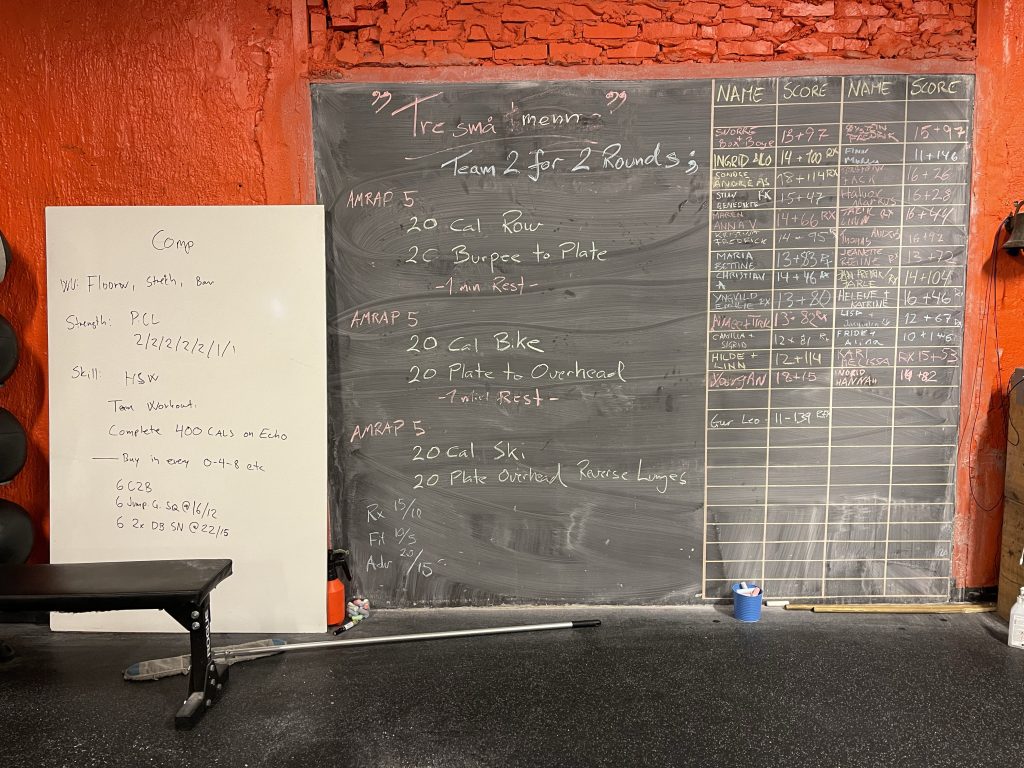 Comp
WU: Floorw, Strech, Bar
Strength: PCL
2/2/2/2/2/1/1
Skill: HSW
Team Workout.
Complete 400 CALS on Echo
Buy in every 0-4-8 etc
6 C2B
6 Jump. G. SQ @16/12
6 2x DB SN @22/15
" Tre små menn "
Team 2 for 2 Rounds;
AMRAP 5
20 Cal Row
20 Burpee to Plate
-1 min Rest-
AMRAP 5
20 Cal Bike
20 Plate to Overhead
-1 min Rest-
AMRAP 5
20 Cal Ski
20 Plate Overhead Reverse Lunges
Rx 15/10
Fit 10/5
Adv 20/15
NAME SCORE NAME SCORE
13+97 15+97
INGRID 14+100 RX 11+146
SONDRE ANDREAS 18+114 RX 16+26
STIAN BENEDIKTE RX 15+47 16+28
MAREN ANNA V 14+66 RX 16+44
FREDRICK 14-95
MARIA BETTINE 13+93 JEANETTE 13+72
CHRISTIAN A 14+46 JARLE 14+104
YNGVILD RX 13+80 HELENE + KATRINE 16+46
13-82 LISA 12+67
CAMILLA + SIGRID 12+81 FRIDE + 10+146
HILDE + LINN 12+114 KARI RX 15+53
18+15 INGRID HANNAH
Gur Leo 11-139